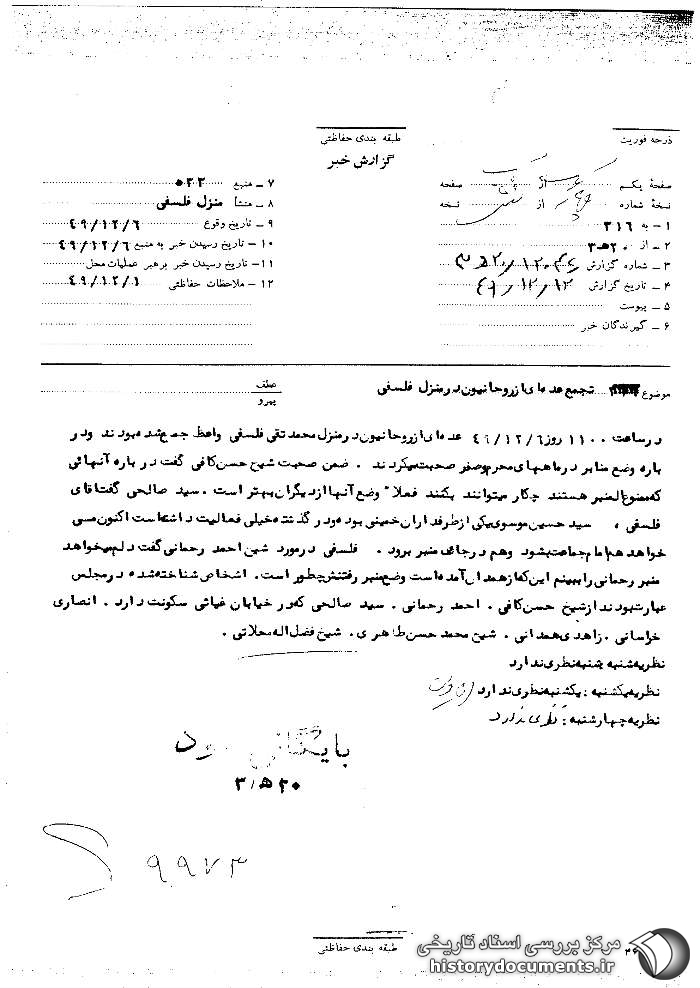 درجه فوریت
طبقه بندی حفاظتی
گزارش خبر
صفحهٔ یکم از صفحه
نسخهٔ شماره از نسخه
۱ ـ به ۳۱۶
۲ ـ از ۲۰ ه‍ ۳
۳ ـ شماره گزارش
۴ ـ تاریخ گزارش ۴۹/۱۲/۱۲
۵ ـ پیوست
۶ ـ گیرندگان خبر
۷ ـ منبع ۵۳۳
۸ ـ منشأ منزل فلسفی
۹ ـ تاریخ وقوع ۴۹/۱۲/۶
۱۰ ـ تاریخ رسیدن خبر به منبع ۴۹/۱۲/۶
۱۱ ـ تاریخ رسیدن خبر برهبر عملیات محل
۱۲ ـ ملاحظات حفاظتی ۴۹/۱۲/۱
موضوع تجمع عده‌ای از روحانیون در منزل فلسفی
عطف
پیرو
در ساعت ۱۱۰۰ روز ۴۹/۱۲/۶ عده‌ای از روحانیون در منزل محمد تقی فلسفی واعظ جمع شده بودند و در
باره وضع منابر در ماههای محرم و صفر صحبت میکردند . ضمن صحبت شیخ حسن کافی گفت در باره آنهائی
که ممنوع المنبر هستند چکار میتوانند بکنند فعلا" وضع آنها از دیگران بهتر است . سید صالحی گفت آقای
فلسفی ، سید حسین موسوی یکی از طرفداران خمینی بوده و در گذشته خیلی فعالیت داشته است اکنون می
خواهد هم امام جماعت بشود و هم در جائی منبر برود . فلسفی در مورد شیخ احمد رحمانی گفت دلم میخواهد
منبر رحمانی را ببینم این که از همدان آمده است وضع منبر رفتنش چطور است . اشخاص شناخته شده در مجلس
عبارت بودند از شیخ حسن کافی . احمد رحمانی . سید صالحی که در خیابان غیاثی سکونت دارد . انصاری
خراسانی . زاهدی همدانی . شیخ محمد حسن طاهری . شیخ فضل اله محلاتی .
نظریه شنبه شنبه نظری ندارد
نظریه یکشنبه : یکشنبه نظری ندارد
نظریه چهارشنبه : نظری ندارد
بایگانی شود
۲۰ ه‍ ۳
۹۹۷۳
طبقه بندی حفاظتی
مرکز بررسی اسناد تاریخی
historydocuments.ir